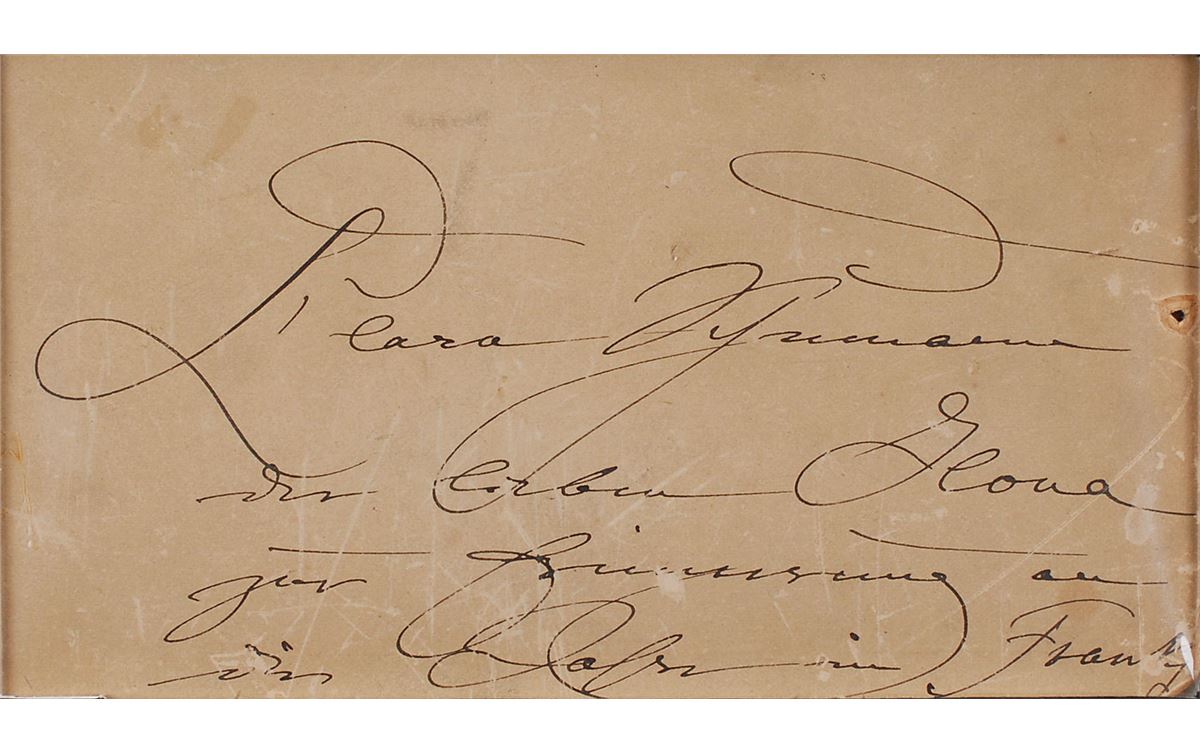 Clara Schumann
der lieben Ilona
zur Erinnerung an
die Jahre in